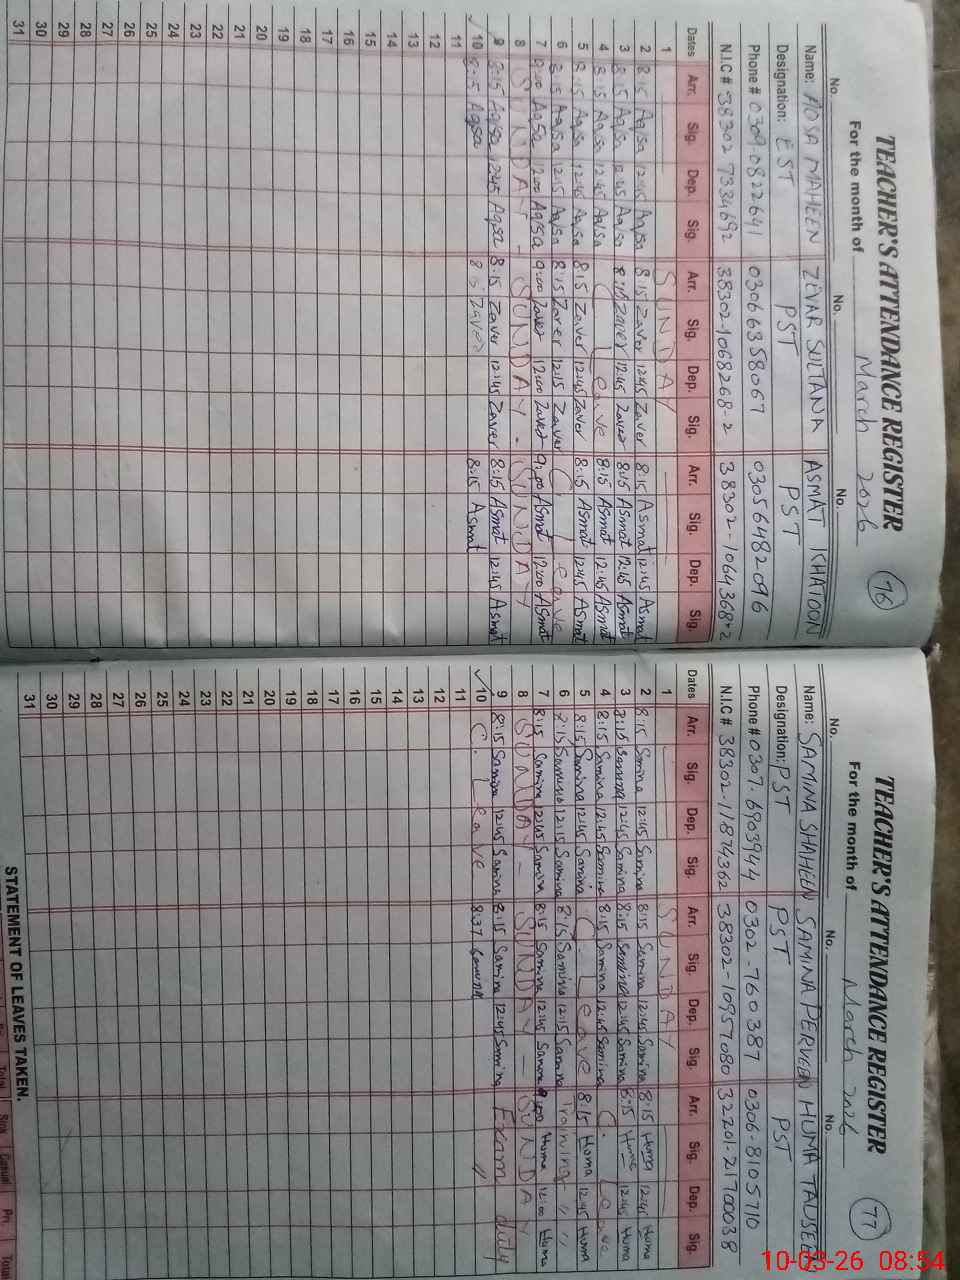 TEACHER'S ATTENDANCE REGISTER
76
For the month of March 2026
No. No. No.
Name: AQSA MAHEEN ZEVAR SULTANA ASMAT KHATOON
Designation: EST PST PST
Phone # 0309.0822641 03066358067 03056482096
N.I.C # 38302 7334692 38302-1068268-2 38302-1064368-2
Dates Arr. Sig. Dep. Sig. Arr. Sig. Dep. Sig. Arr. Sig. Dep. Sig.
1 SUNDAY
2 8:15 Aqsa 12:45 Aqsa 8:15 Zaver 12:45 Zaver 8:15 Asmat 12:45 Asmat
3 8:15 Aqsa 12:45 Aqsa 8:15 Zaver 12:45 Zaver 8:15 Asmat 12:45 Asmat
4 8:15 Aqsa 12:45 Aqsa C. Leave 8:15 Asmat 12:45 Asmat
5 8:15 Aqsa 12:45 Aqsa 8:15 Zaver 12:45 Zaver 8:15 Asmat 12:45 Asmat
6 8:15 Aqsa 12:15 Aqsa 8:15 Zaver 12:15 Zaver C. Leave
7 9:00 Aqsa 12:00 Aqsa 9:00 Zaver 12:00 Zaver 9:00 Asmat 12:00 Asmat
8 SUNDAY - SUNDAY - SUNDAY
9 8:15 Aqsa 12:45 Aqsa 8:15 Zaver 12:45 Zaver 8:15 Asmat 12:45 Asmat
10 8:15 Aqsa 8:15 Zaver 8:15 Asmat
11
12
13
14
15
16
17
18
19
20
21
22
23
24
25
26
27
28
29
30
31
TEACHER'S ATTENDANCE REGISTER
77
For the month of March 2026
No. No. No.
Name: SAMINA SHAHEEN SAMINA PERVEEN HUMA TAUSEEF
Designation: PST PST PST
Phone # 0307.6903944 0302-7600387 0306-8105710
N.I.C # 38302-1187436 2 38302-1095708 0 32201-2170003 8
Dates Arr. Sig. Dep. Sig. Arr. Sig. Dep. Sig. Arr. Sig. Dep. Sig.
1 SUNDAY
2 8:15 Samina 12:45 Samina 8:15 Samina 12:45 Samina 8:15 Huma 12:45 Huma
3 8:15 Samina 12:45 Samina 8:15 Samina 12:45 Samina 8:15 Huma 12:45 Huma
4 8:15 Samina 12:45 Samina 8:15 Samina 12:45 Samina C. Leave
5 8:15 Samina 12:45 Samina C. Leave 8:15 Huma 12:45 Huma
6 8:15 Samina 12:15 Samina 8:15 Samina 12:15 Samina Training " "
7 8:15 Samina 12:45 Samina 8:15 Samina 12:45 Samina 9:00 Huma 12:00 Huma
8 SUNDAY - SUNDAY - SUNDAY
9 8:15 Samina 12:45 Samina 8:15 Samina 12:45 Samina Exam duty
10 C. Leave 8:37 Samina "
11
12
13
14
15
16
17
18
19
20
21
22
23
24
25
26
27
28
29
30
31
STATEMENT OF LEAVES TAKEN.
Total Sick Casual Pri. Total
10-03-26 08:54